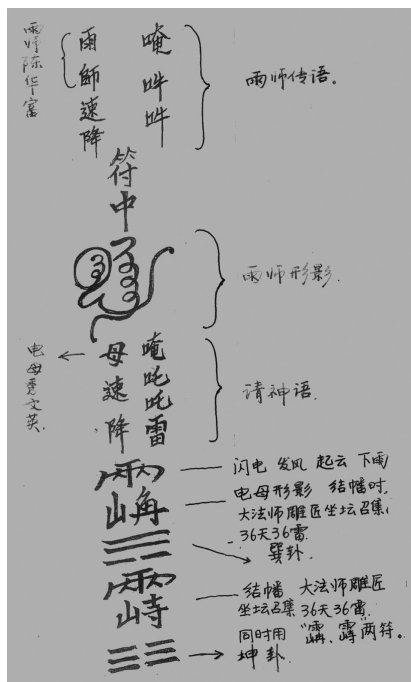 雨师陈华富
雨師速降
唵吽吽
雨师传语。
符中
雨师形影.
电母秀文英.
母速降
唵吒吒雷
请神语.
闪电 发风 起云 下雨
电母形影 结幡时,
大法师雕匠坐坛召集
36天36雷.
巽卦.
结幡 大法师雕匠
坐坛召集 36天36雷.
同时用
两符。
坤卦.